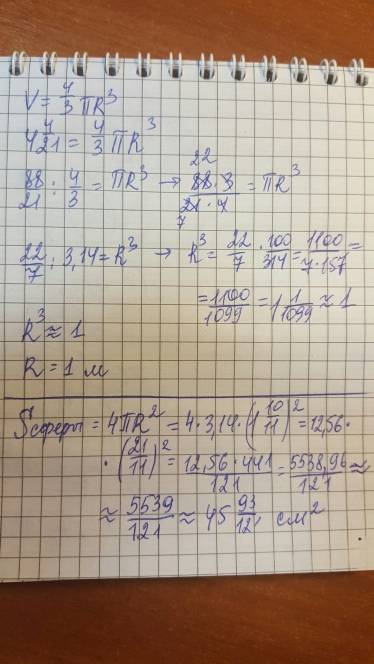 V = 4/3 πR³
4 4/21 = 4/3 πR³
88/21 : 4/3 = πR³ → 22 88·3 / 21·4 7 = πR³
22/7 : 3,14 = R³ → R³ = 22/7 · 100/314 = 1100/7·157 =
= 1100/1099 = 1 1/1099 ≈ 1
R³ ≈ 1
R = 1 м
Sсферы = 4πR² = 4·3,14·(1 10/11)² = 12,56·
·(21/11)² = 12,56·441/121 = 5538,96/121 ≈
≈ 5539/121 ≈ 45 93/121 см²